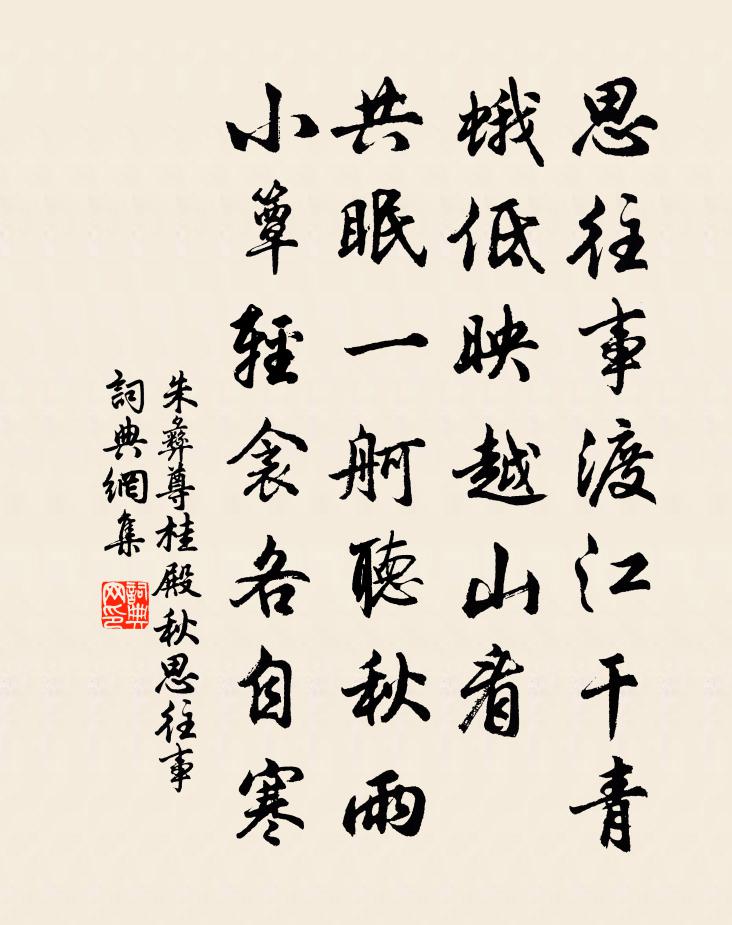 思往事渡江干青
蛾低映越山看
共眠一舸聽秋雨
小簟輕衾各自寒
朱彝尊桂殿秋思往事
詞典網集
詞典网印